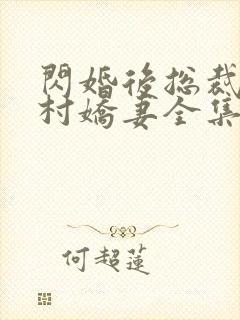 閃婚後总裁
村嬌妻全集
何超蓮